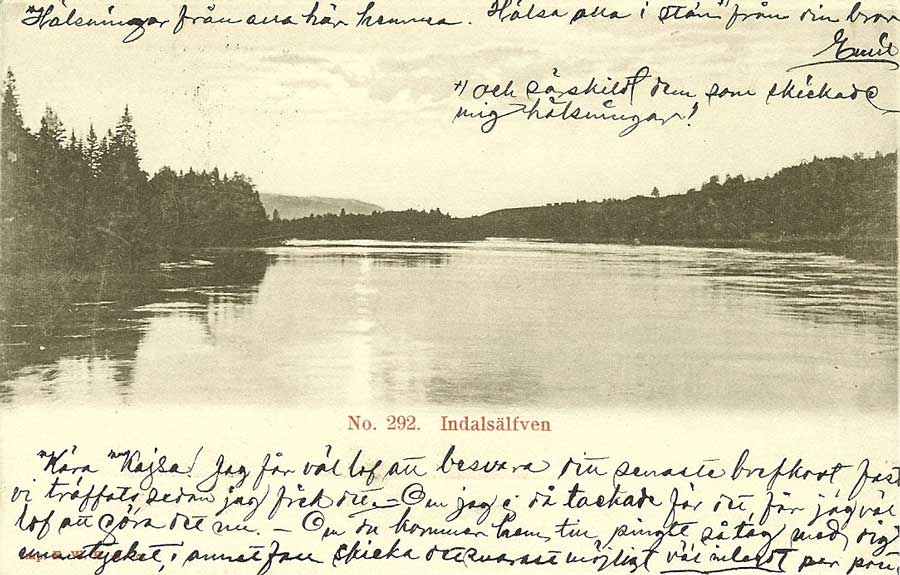 Hälsningar från alla här hemma. Hälsa alla i stán +) från din bror
Emil
+) och särskildt dem som skickade
mig hälsningar!
No. 292. Indalsälfven
Kära Kajsa! Jag får väl lof att besvara ditt senaste brefkort fast
vi träffats sedan jag fick det. – Om jag ej då tackade för det, får jag väl
lof att göra det nu. – Om du kommer hem till pingst så tag med dig
 stycket, i annat fall skicka det snarast möjligt väl inlagdt per post